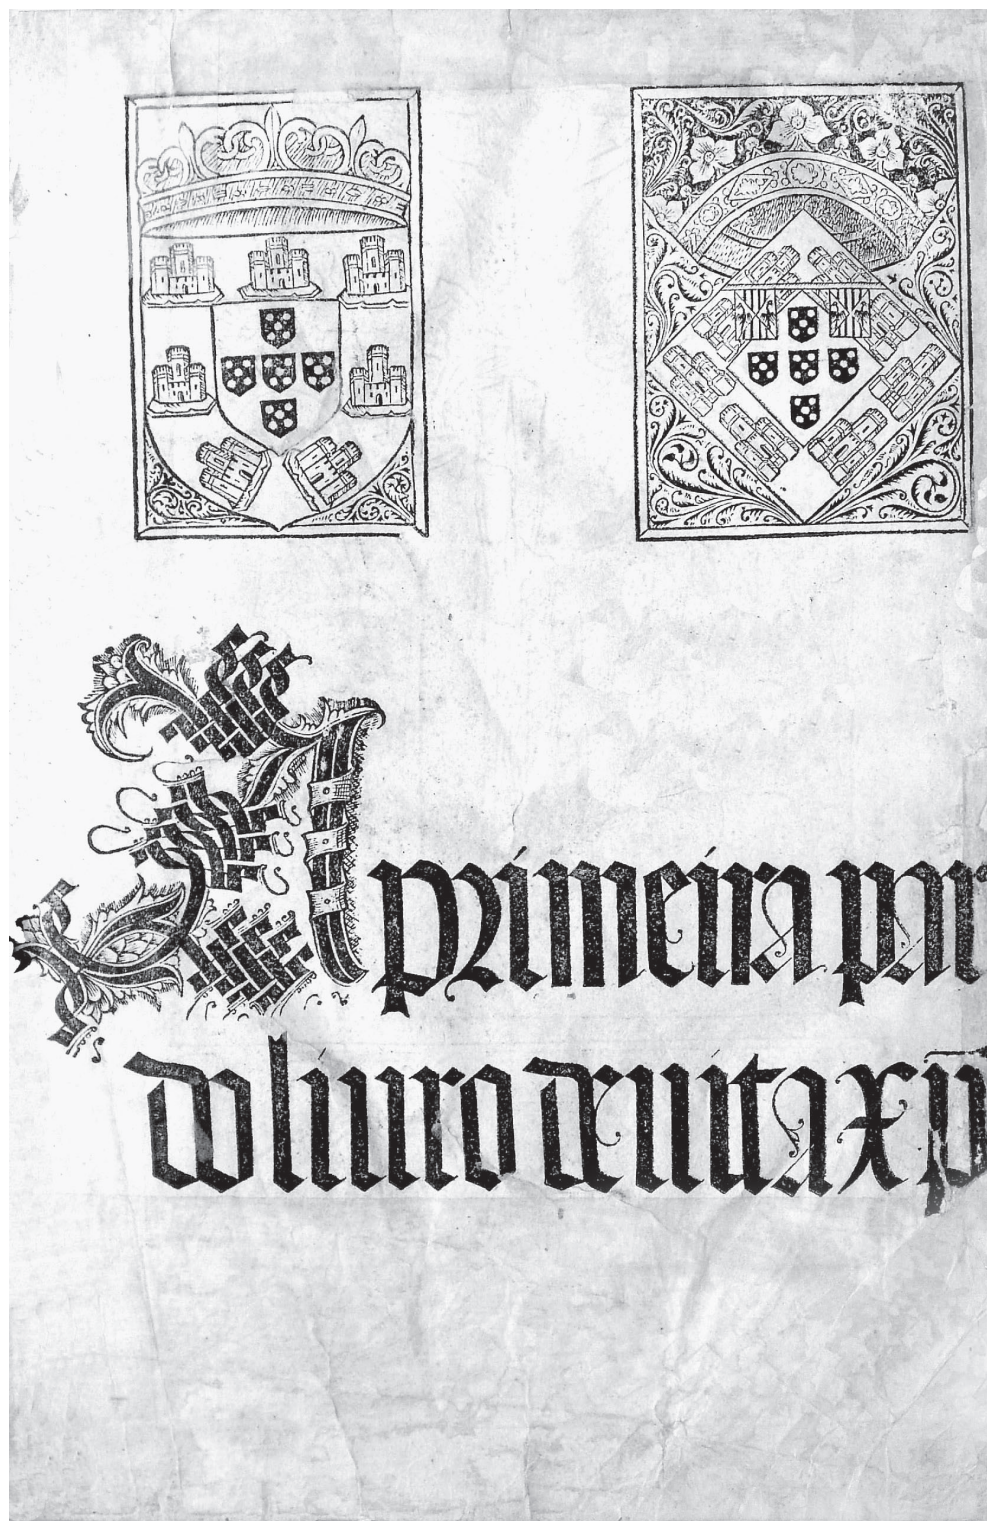 A primeira par
do liuro de vita xp̄